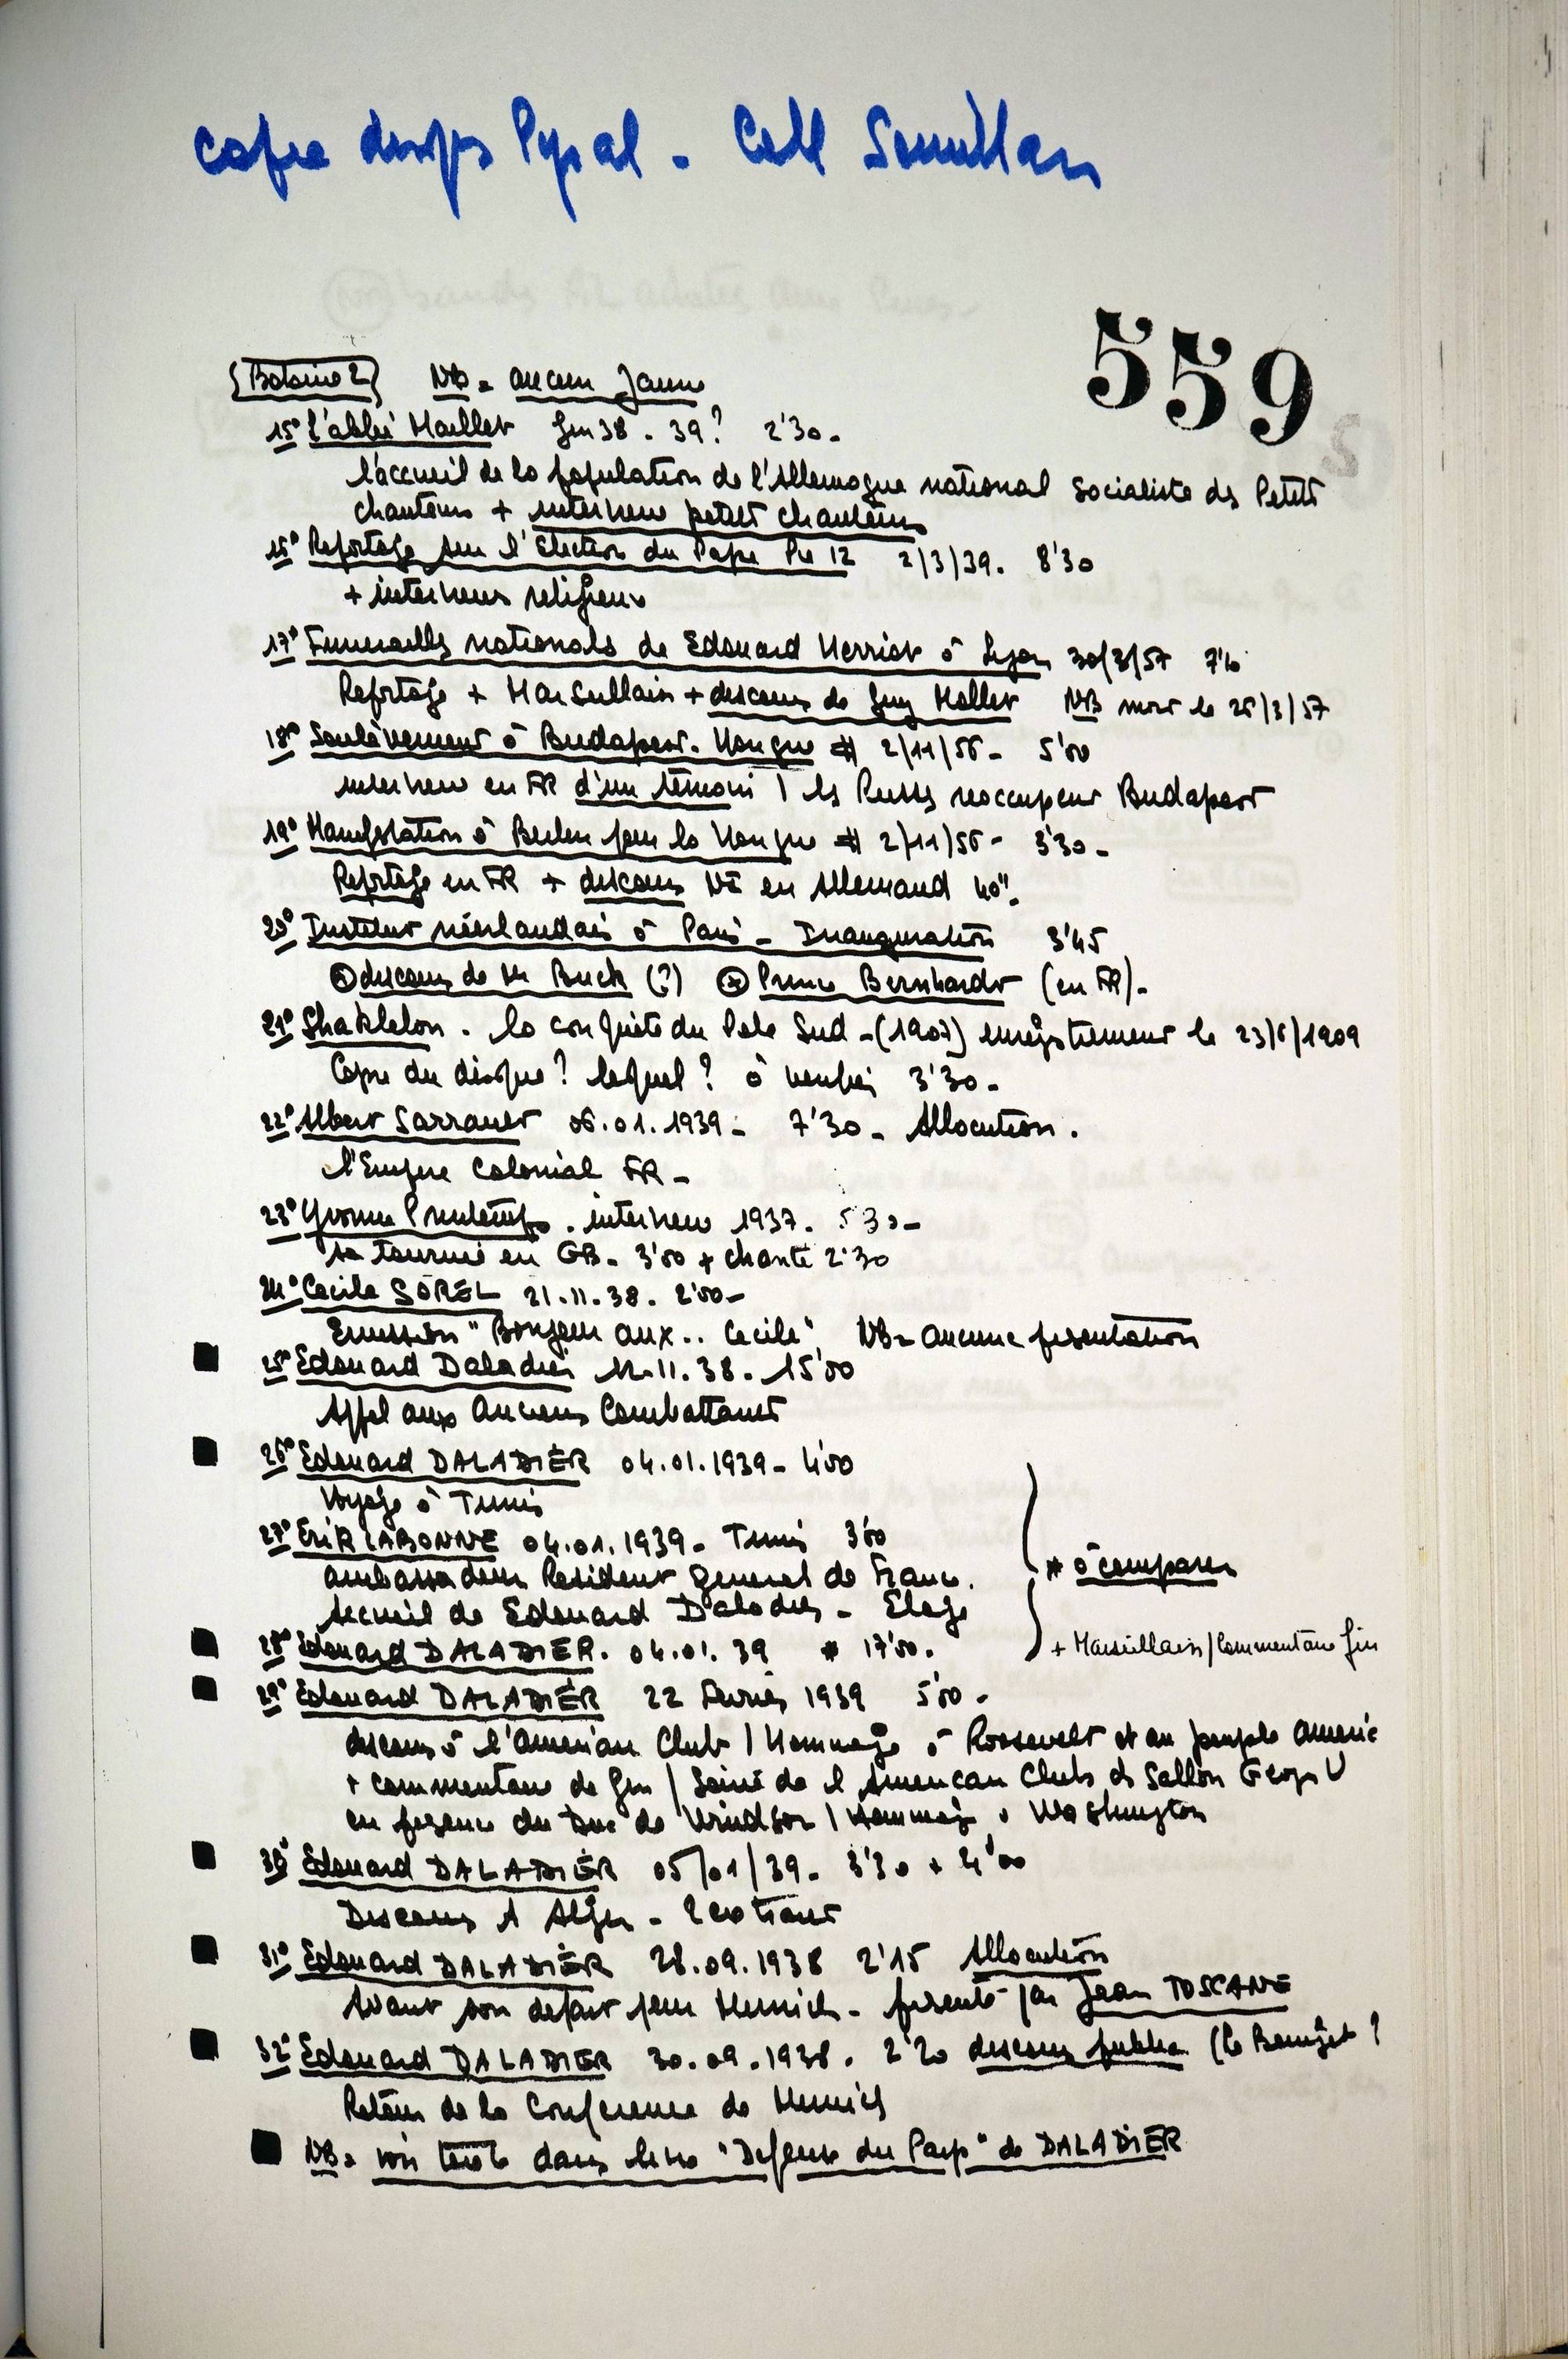 copie disques Pyral - Coll
559
Bobine 2 NB = aucun Jaune
15° l'abbé Maillet fin 38 - 39? 2'30 -
l'accueil de la population de l'Allemagne national Socialiste ds Petits
chanteurs + interview petits chanteurs
16° Reportage sur l'Election du Pape Pie 12 2/3/39. 8'30
+ interviews religieux
17° Funerailles nationals de Edouard Herriot à Lyon 30/3/57
Reportage + Marseillaise + discours de Guy Mollet NB mort le 26/3/57
18° Soulèvement à Budapest. Hongrie # 2/11/56 - 5'00
interview en FR d'un témoin / ls Russes reoccupent Budapest
19° Manifestation à Berlin pour la Hongrie # 2/11/56 - 3'30 -
Reportage en FR + discours NI en Allemand 40".
20° Institut néerlandais à Paris - Inauguration 3'45
discours de Mr Buck (?) Prince Bernhardt (en FR) -
21° Shakleton. la conquète du Pole Sud - (1907) enregistrement le 23/6/1909
Copie du disque? lequel? à verifier 3'30 -
22° Albert Sarraut 06.01.1939 - 7'30 - Allocution.
l'Empire Colonial FR -
23° Yvonne Printemps. interview 1937. 5'30 -
sa tournée en GB - 3'00 + chante 2'30
24° Cecile SOREL 21.11.38. 2'00 -
Emission "Bonjour aux.. Cecile" NB = aucune presentation
25° Edouard Daladier 12.11.38. 15'00
Appel aux Anciens Combattants
26° Edouard DALADIER 04.01.1939 - 4'00
Voyage à Tunis
27° Erik LABONNE 04.01.1939 - Tunis 3'00
ambassadeur Resident general de France.
Accueil de Edouard Daladier - Eloge
* à comparer
28° Edouard DALADIER. 04.01.39 * 17'00.
+ Marseillaise / Commentaire fin
29° Edouard DALADIER 22 Fevrier 1939 5'00 -
discours à l'American Club / Hommage à Roosevelt et au peuple Americ
+ commentaire de fin / Soirée de l American Club ds Sallon George V
en presence du Duc de Windsor / Hommage à Washington
30° Edouard DALADIER 05/01/39 - 3'30 + 4'00
Discours A Alger - 2 extraits
31° Edouard DALADIER 28.09.1938 2'15 Allocution
Avant son depart pour Munich - presenté par Jean TOSCANE
32° Edouard DALADIER 30.09.1938. 2'20 discours public (le Bourget ?
Retour de la Conference de Munich
NB = voir texte dans livre "Defense du Pays" de DALADIER